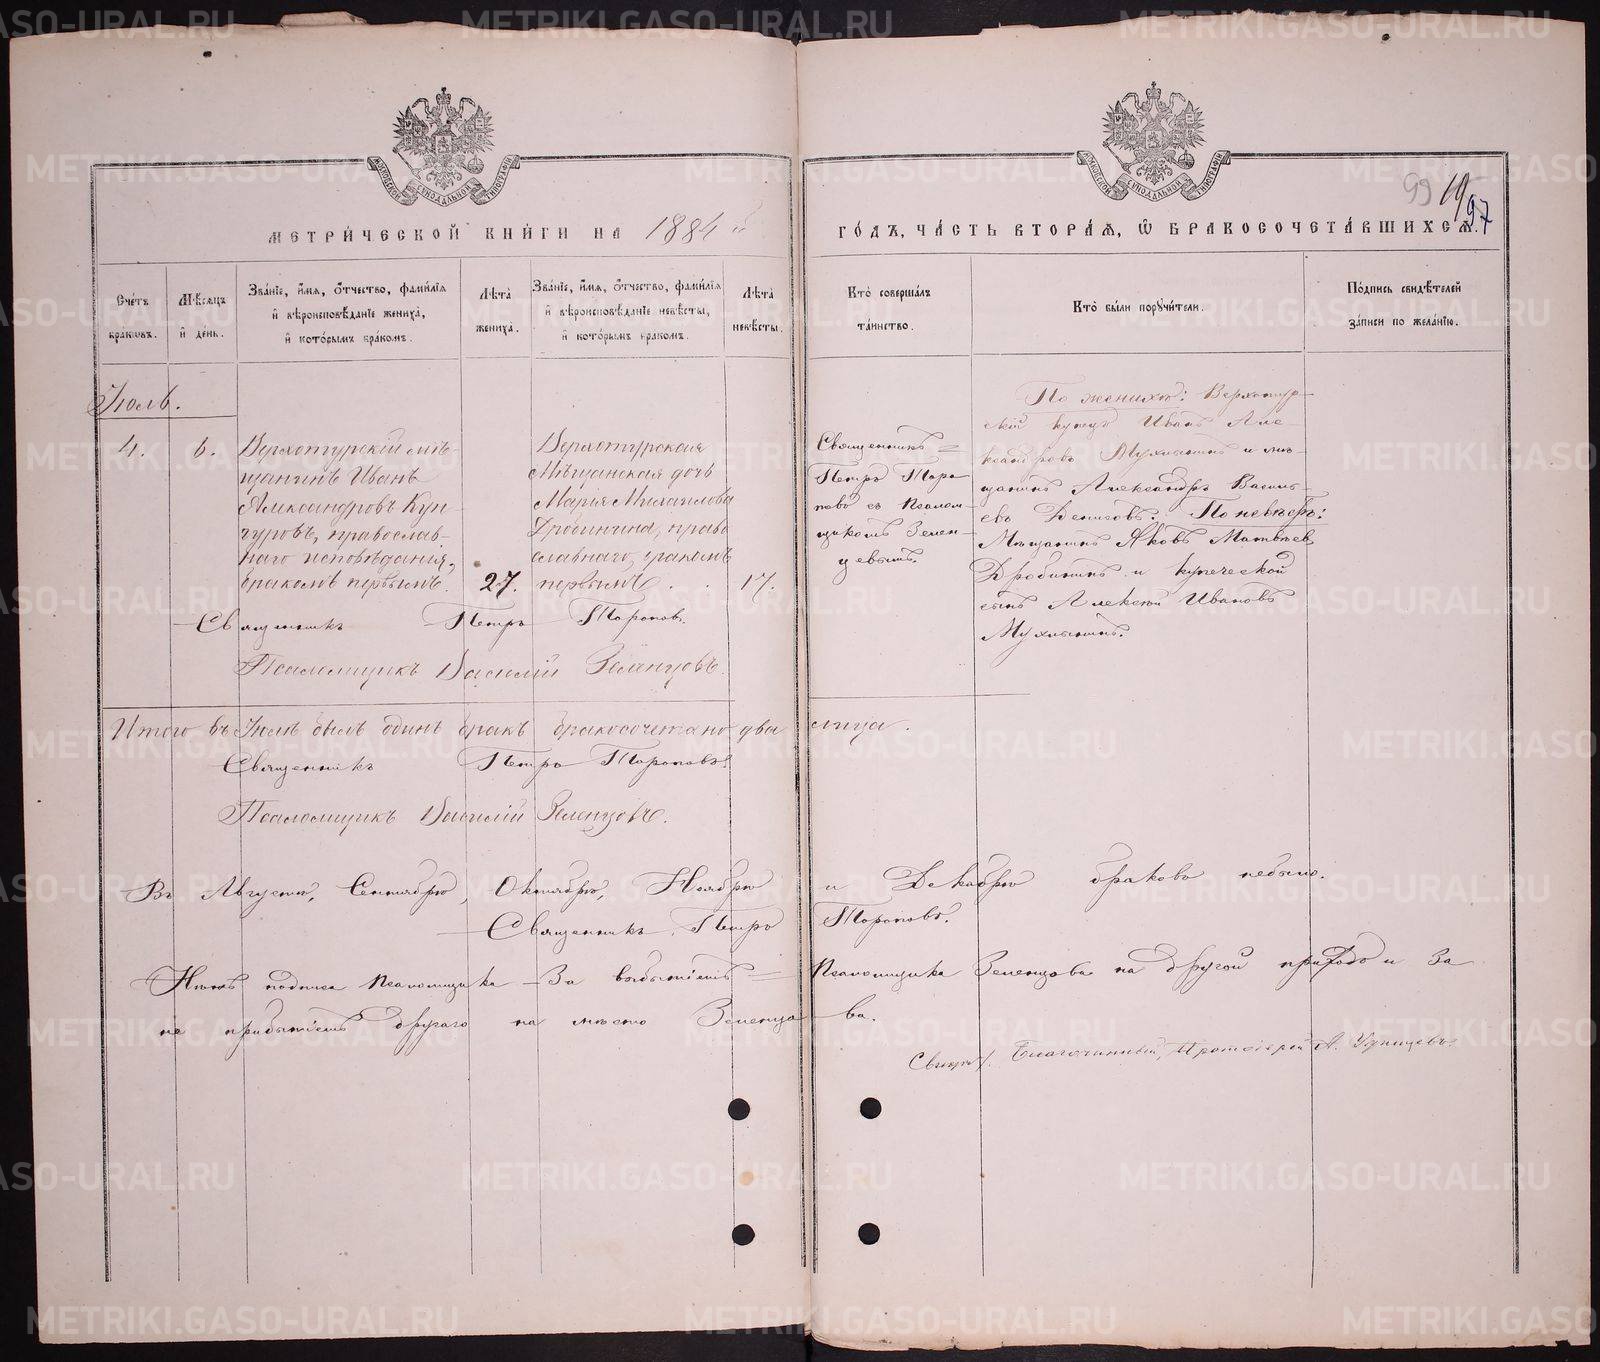 МОСКОВСКОЙ СѴНОДАЛЬНОЙ ТѴПОГРАФІИ
МОСКОВСКОЙ СѴНОДАЛЬНОЙ ТѴПОГРАФІИ
99 19 97
МЕТРИ́ЧЕСКОЙ КНИ́ГИ НА 1884й
ГО́ДЪ, ЧА́СТЬ ВТОРА́Ѧ, Ѿ БРАКОСОЧЕТА́ВШИХСѦ.
Сче́тъ
бракѡвъ.
Мѣ́сѧцъ
и҆ де́нь.
Зва́нїе, и҆́мѧ, ѻ҆́тчество, фами́лїѧ
и҆ вѣроисповѣ́данїе жениха̀,
и҆ кото́рымъ бра́комъ.
Лѣ́та
жениха̀.
Зва́нїе, и҆́мѧ, ѻ҆́тчество, фами́лїѧ
и҆ вѣроисповѣ́данїе невѣ́сты,
и҆ кото́рымъ бра́комъ.
Лѣ́та
невѣ́сты.
Кто̀ соверша́лъ
та́инство.
Кто̀ бы́ли порꙋчи́тели.
По́дпись свидѣ́телей
за́писи по жела́нїю.
Іюль.
4.
6.
Верхотурскій мѣ-
щанинъ Иванъ
Александровъ Кун-
гуровъ, православ-
наго исповѣданія,
бракомъ первымъ.
27.
Верхотурская
Мѣщанская дочь
Марія Михаилова
Дробинина, право
славнаго, бракомъ
первымъ.
17.
Священникъ =
Петръ Торо
повъ съ Псалом-
щикомъ Зелен-
цевымъ.
По женихѣ: Верхотур-
скій купецъ Иванъ Але-
ксандровъ Мухлынинъ и мѣ-
щанинъ Александръ Василь-
евъ Денисовъ. По невѣстѣ:
Мѣщанинъ Яковъ Матвѣевъ
Дробининъ и купеческой
сынъ Алексѣй Ивановъ
Мухлынинъ.
Священникъ Петръ Тороповъ.
Псаломщикъ Василій Зеленцовъ.
Итого въ Іюлѣ былъ одинъ бракъ бракосочетано два лица.
Священникъ Петръ Тороповъ.
Псаломщикъ Василій Зеленцовъ.
Въ Августѣ, Сентябрѣ, Октябрѣ, Ноябрѣ и Декабрѣ браковъ небыло.
Священникъ Петръ Тороповъ.
Нѣтъ подписа Псаломщика — За выбытіемъ = Псаломщика Зеленцова на другой приходъ и за
не прибытіемъ другаго на мѣсто Зеленцова.
Благочинный, Протоіерей А.